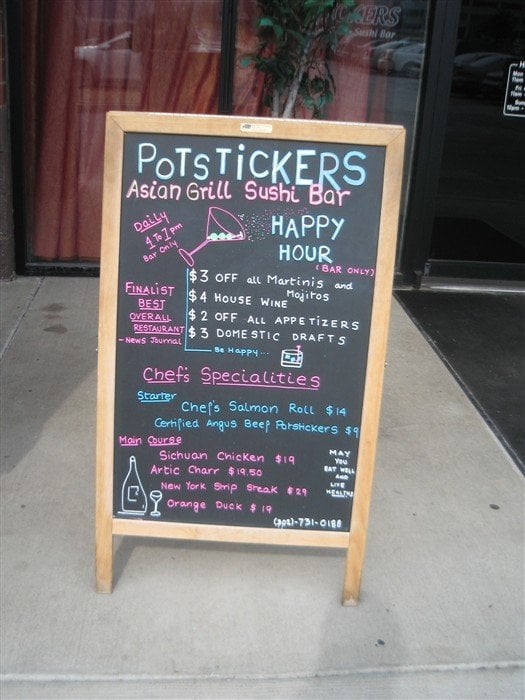 KERS
Sushi Bar
POTSTICKERS
Asian Grill Sushi Bar
Daily
4 To 7 pm
Bar Only
HAPPY
HOUR
(BAR ONLY)
$3 OFF all Martinis and
Mojitos
$4 HOUSE WINE
$2 OFF ALL APPETIZERS
$3 DOMESTIC DRAFTS
Be Happy...
FINALIST
BEST
OVERALL
RESTAURANT
- News Journal
Chef's Specialities
Starter
Chef's Salmon Roll $14
Certified Angus Beef Potstickers $9
Main Course
Sichuan Chicken $19
Artic Charr $19.50
New York Strip Steak $29
Orange Duck $19
MAY
YOU
EAT WELL
AND
LIVE
HEALTHY
(302)-731-0188